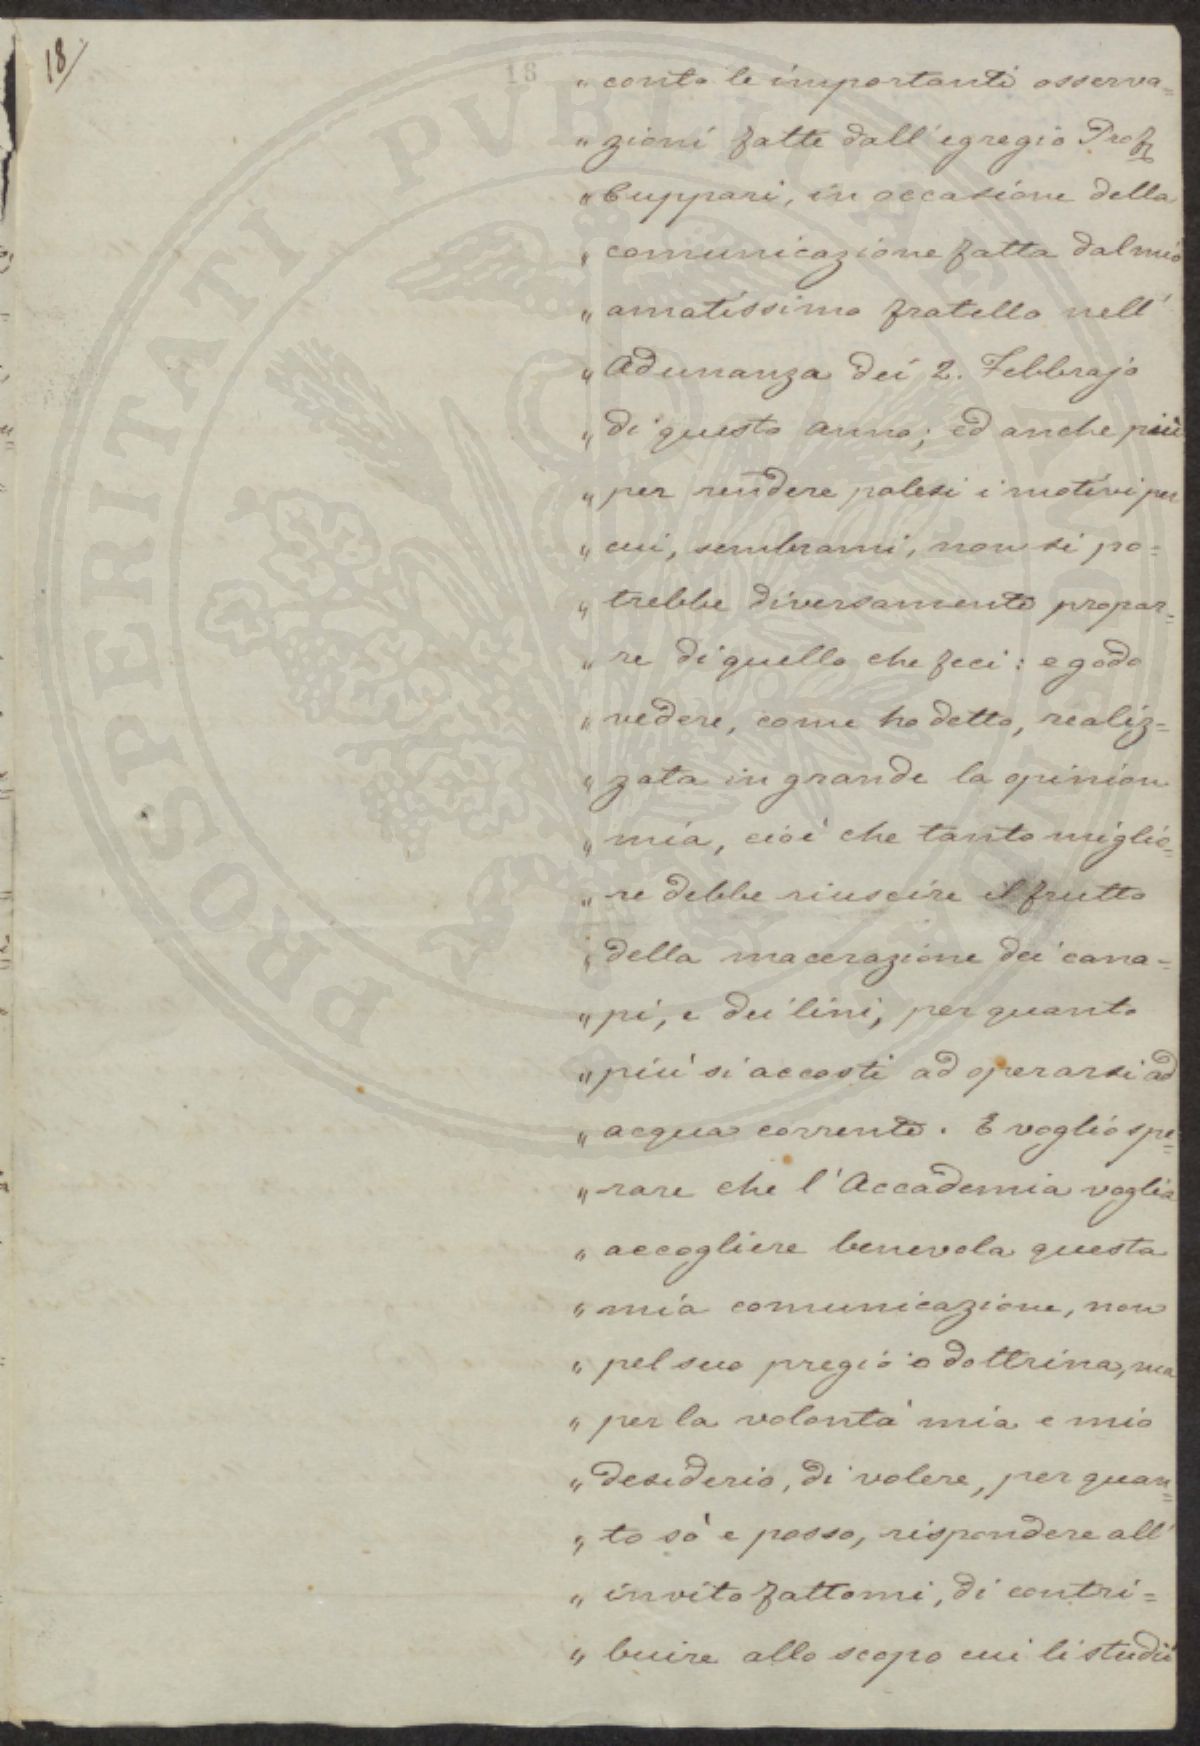 18
18
„ conto le importanti osserva=
„ zioni fatte dall'egregio Prof
„ Cuppari, in occasione della
„ comunicazione fatta dal mio
„ amatissimo fratello nell'
„ Adunanza dei 2. Febbrajo
„ di questo anno; ed anche più
„ per rendere palesi i motivi per
„ cui, sembrami, non si po=
„ trebbe diversamente propor=
„ re di quello che feci: e godo
„ vedere, come ho detto, realiz=
„ zata in grande la opinion
„ mia, cioè che tanto miglio=
„ re debbe riuscire il frutto
„ della macerazione dei cana=
„ pi, e dei lini, per quanto
„ più si accosti ad operarsi ad
„ acqua corrente. E voglio spe=
„ rare che l'Accademia voglia
„ accogliere benevola questa
„ mia comunicazione, non
„ pel suo pregio o dottrina, ma
„ per la volontà mia e mio
„ desiderio, di volere, per quan=
„ to sò e posso, rispondere all'
„ invito fattomi, di contri=
„ buire allo scopo cui li studii
PROSPERITATI PVBLICAE AVGENDAE